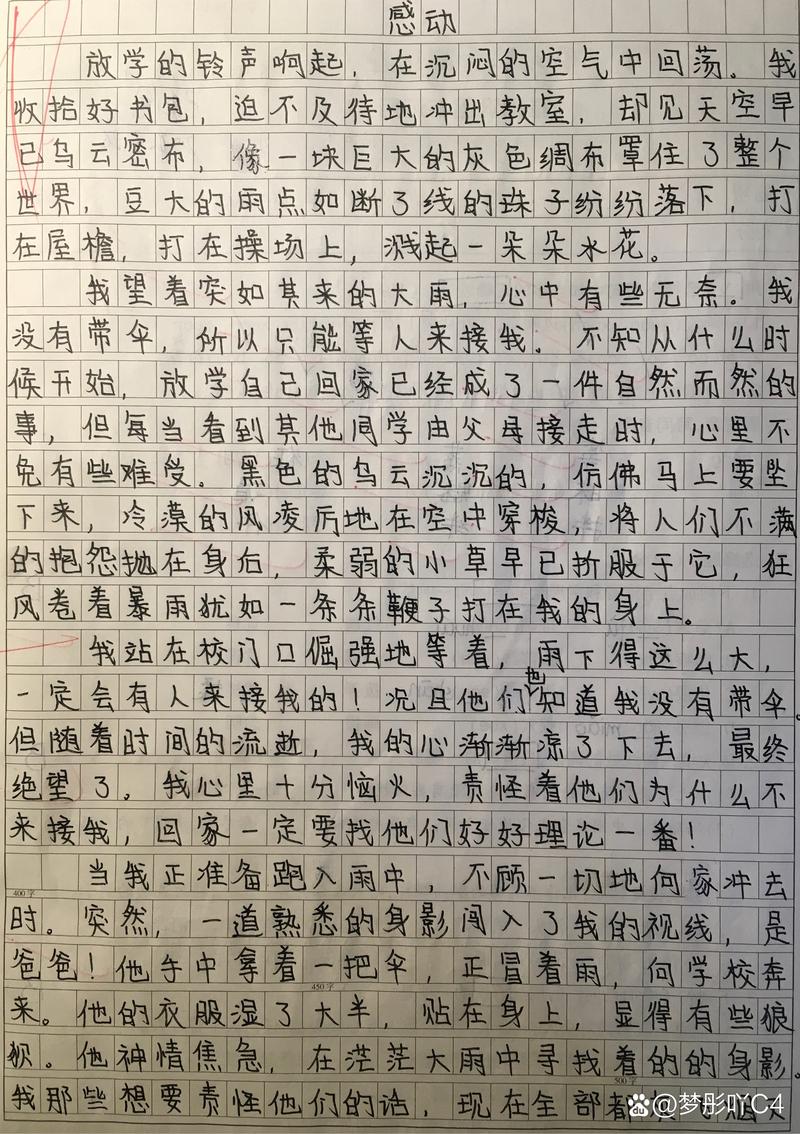 感动
放学的铃声响起，在沉闷的空气中回荡。我
收拾好书包，迫不及待地冲出教室，却见天空早
已乌云密布，像一块巨大的灰色绸布罩住了整个
世界，豆大的雨点如断了线的珠子纷纷落下，打
在屋檐，打在操场上，溅起一朵朵水花。
我望着突如其来的大雨，心中有些无奈。我
没有带伞，所以只能等人来接我。不知从什么时
候开始，放学自己回家已经成了一件自然而然的
事，但每当看到其他同学由父母接走时，心里不
免有些难受。黑色的乌云沉沉的，仿佛马上要坠
下来，冷漠的风凌厉地在空中穿梭，将人们不满
的抱怨抛在身后，柔弱的小草早已折服于它，狂
风卷着暴雨犹如一条条鞭子打在我的身上。
我站在校门口倔强地等着，雨下得这么大，
一定会有人来接我的！况且他们也知道我没有带伞。
但随着时间的流逝，我的心渐渐凉了下去，最终
绝望了。我心里十分恼火，责怪着他们为什么不
来接我，回家一定要找他们好好理论一番！
当我正准备跑入雨中，不顾一切地向家冲去
400字
时。突然，一道熟悉的身影闯入了我的视线，是
爸爸！他手中拿着一把伞，正冒着雨，向学校奔
450字
来。他的衣服湿了大半，贴在身上，显得有些狼
狈。他神情焦急，在茫茫大雨中寻找着的的身影。
500字
我那些想要责怪他们的话，现在全部都
@梦彤吖C4